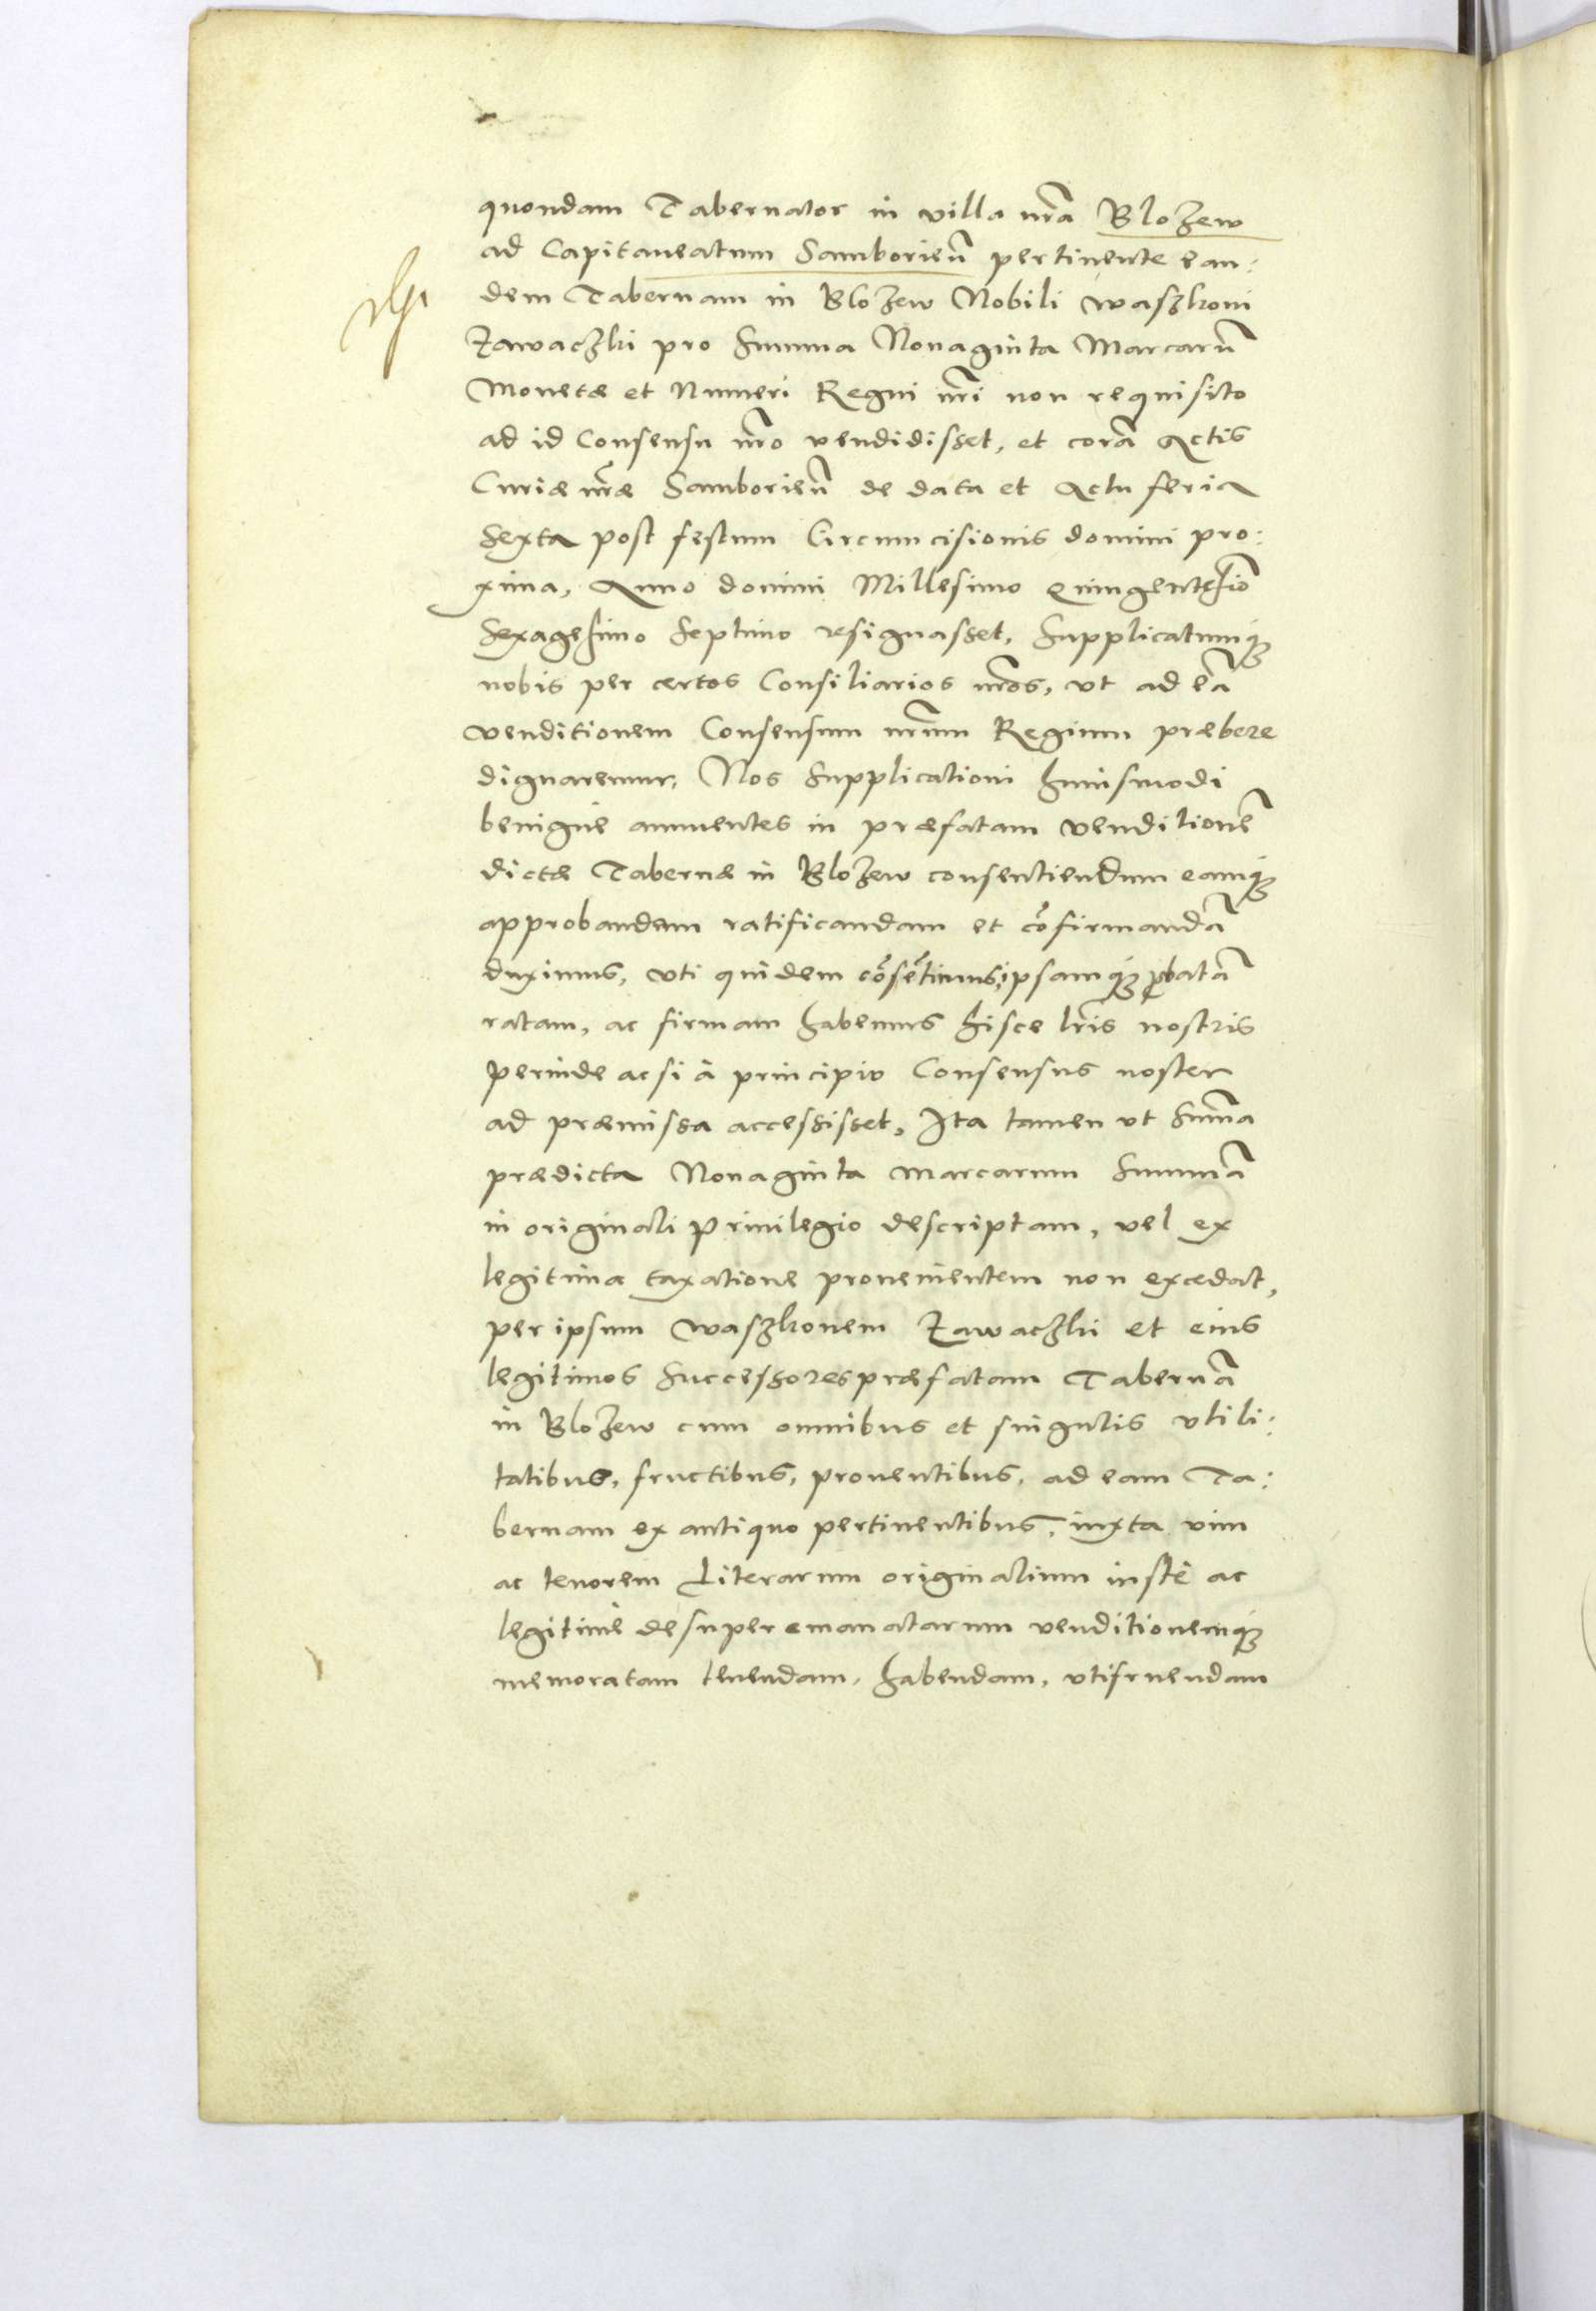 quondam Tabernator in villa nr̃a Blożew
ad Capitaneatum Samborieñ pertinente ean:
dem Tabernam in Blożew Nobili Waszkoni
Zawaczki pro Summa Nonaginta Marcarũ
Monetæ et Numeri Regni nr̃i non requisito
ad id Consensu nr̃o vendidisset, et corã Actis
Curiæ nr̃æ Samborieñ de data et Actu feria
Sexta post festum Circumcisionis domini pro:
xima, Anno domini Millesimo Quingentesĩo
Sexagesimo Septimo resignasset, Supplicatumq́ꝫ
nobis per certos Consiliarios nr̃os, vt ad eã
venditionem Consensum nr̃um Regium præbere
dignaremur, Nos Supplicationi huiusmodi
benignè annuentes in præfatam venditionẽ
dictæ Tabernæ in Blożew consentiendum eamq́ꝫ
approbandam ratificandam et cõfirmandã
duximus, vti quidem cõsẽtimus, ipsamq́ꝫ ꝓbatã
ratam, ac firmam habemus hisce lr̃is nostris
perinde ac si à principio Consensus noster
ad præmissa accessisset, Ita tamen vt Sum̃a
prædicta Nonaginta Marcarum Summã
in originali Priuilegio descriptam, vel ex
legitima taxatione prouenientem non excedat,
per ipsum Waszkonem Zawaczki et eius
legitimos Successores præfatam Tabernã
in Blożew cum omnibus et singulis vtili:
tatibus, fructibus, prouentibus, ad eam Ta:
bernam ex antiquo pertinentibus, iuxta vim
ac tenorem Literarum originalium iustè ac
legitimè desuper emanatarum venditionemq́ꝫ
memoratam tenendam, habendam, vtifruendam